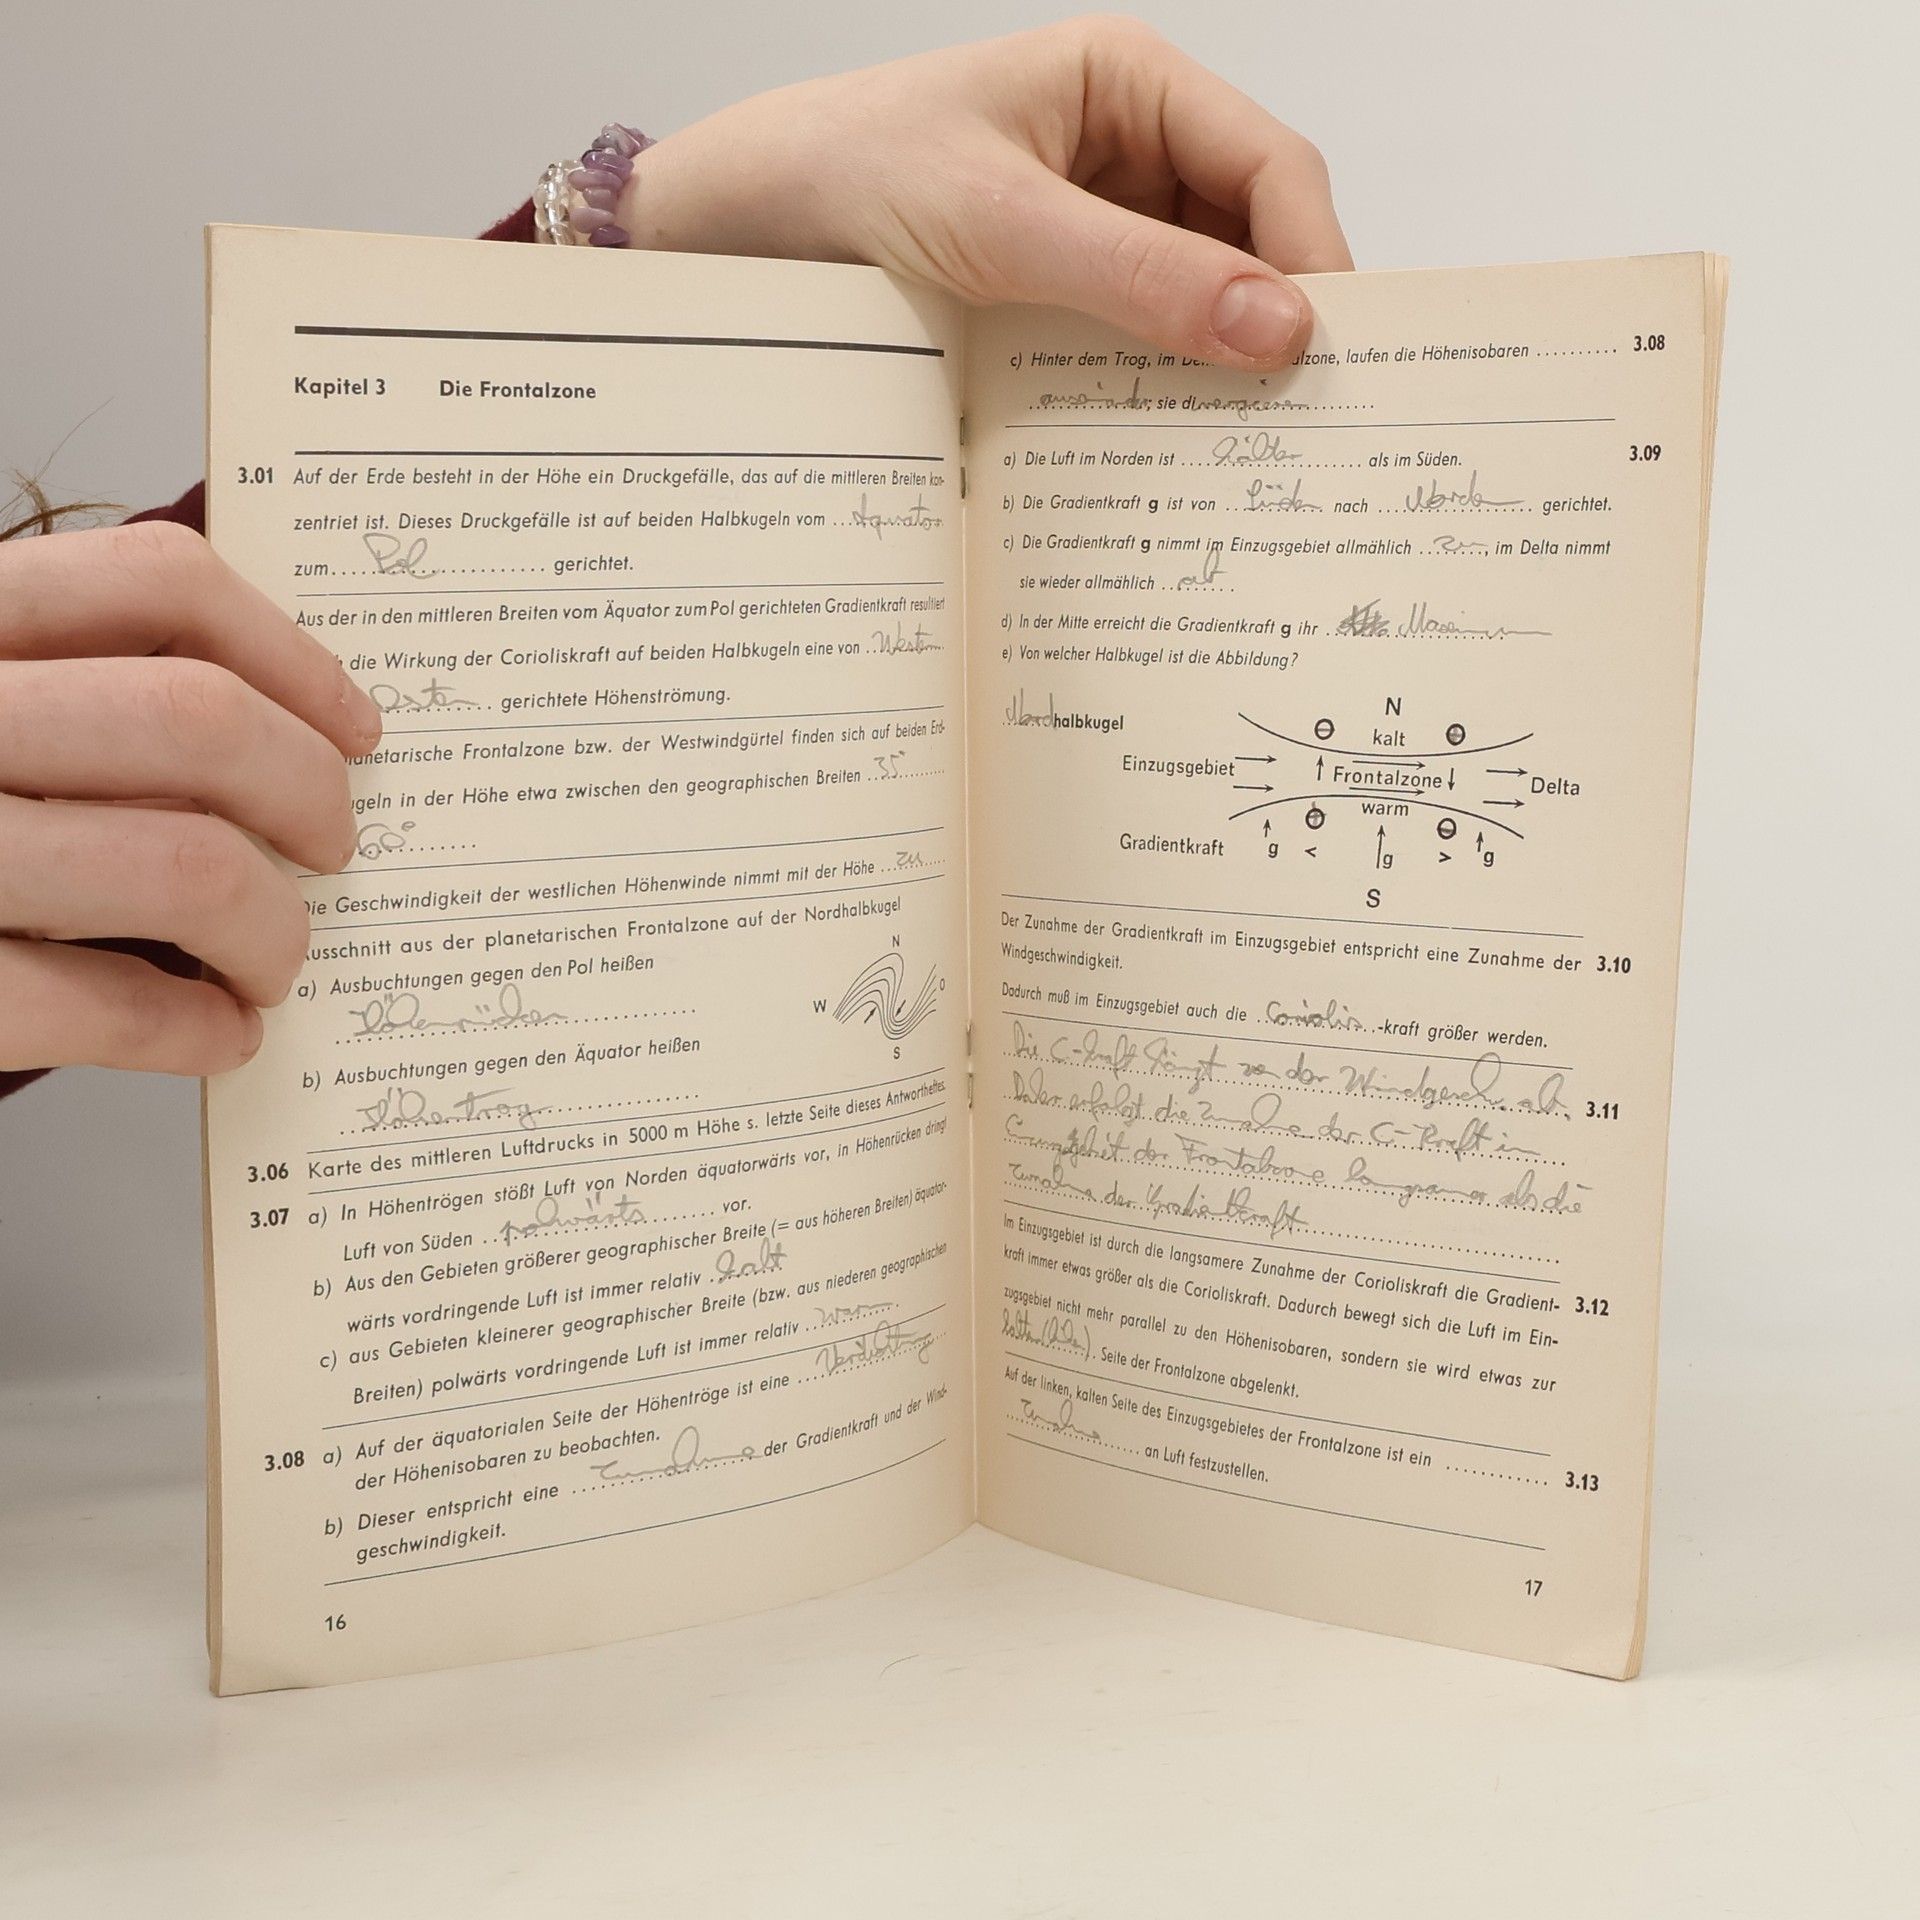 Kapitel 3 Die Frontalzone
3.01 Auf der Erde besteht in der Höhe ein Druckgefälle, das auf die mittleren Breiten kon-
zentriert ist. Dieses Druckgefälle ist auf beiden Halbkugeln vom ... Äquator
zum .... Pol .............. gerichtet.
Aus der in den mittleren Breiten vom Äquator zum Pol gerichteten Gradientkraft resultiert
die Wirkung der Corioliskraft auf beiden Halbkugeln eine von .. Westen
Osten .... gerichtete Höhenströmung.
planetarische Frontalzone bzw. der Westwindgürtel finden sich auf beiden Erd-
kugeln in der Höhe etwa zwischen den geographischen Breiten ... 35° ......
60° ........
Die Geschwindigkeit der westlichen Höhenwinde nimmt mit der Höhe ... zu ...
Ausschnitt aus der planetarischen Frontalzone auf der Nordhalbkugel
a) Ausbuchtungen gegen den Pol heißen
Höhenrücken
b) Ausbuchtungen gegen den Äquator heißen
Höhentrog
N
W
O
S
3.06 Karte des mittleren Luftdrucks in 5000 m Höhe s. letzte Seite dieses Antwortheftes
3.07 a) In Höhentrögen stößt Luft von Norden äquatorwärts vor, in Höhenrücken dringt
Luft von Süden .. polwärts ........ vor.
b) Aus den Gebieten größerer geographischer Breite (= aus höheren Breiten) äquator-
wärts vordringende Luft ist immer relativ .. kalt
c) aus Gebieten kleinerer geographischer Breite (bzw. aus niederen geographischen
Breiten) polwärts vordringende Luft ist immer relativ .. warm ..
3.08 a) Auf der äquatorialen Seite der Höhentröge ist eine .... Verdichtung
der Höhenisobaren zu beobachten.
b) Dieser entspricht eine .... Zunahme der Gradientkraft und der Wind-
geschwindigkeit.
16
c) Hinter dem Trog, im alzone, laufen die Höhenisobaren .......... 3.08
auseinander; sie divergieren ........
a) Die Luft im Norden ist .... kälter ........ als im Süden. 3.09
b) Die Gradientkraft g ist von .. Süden nach ... Norden ... gerichtet.
c) Die Gradientkraft g nimmt im Einzugsgebiet allmählich .. zu ..., im Delta nimmt
sie wieder allmählich .. ab ..
d) In der Mitte erreicht die Gradientkraft g ihr .. Maximum
e) Von welcher Halbkugel ist die Abbildung?
Nordhalbkugel
N
kalt
Einzugsgebiet
Frontalzone
Delta
warm
Gradientkraft
g < g > g
S
Der Zunahme der Gradientkraft im Einzugsgebiet entspricht eine Zunahme der 3.10
Windgeschwindigkeit.
Dadurch muß im Einzugsgebiet auch die .. Coriolis ..-kraft größer werden.
Die C-kraft hängt von der Windgeschw. ab. 3.11
Daher erfolgt die Zunahme der C-Kraft im
Einzugsgebiet der Frontalzone langsamer als die
Zunahme der Gradientkraft
Im Einzugsgebiet ist durch die langsamere Zunahme der Corioliskraft die Gradient- 3.12
kraft immer etwas größer als die Corioliskraft. Dadurch bewegt sich die Luft im Ein-
zugsgebiet nicht mehr parallel zu den Höhenisobaren, sondern sie wird etwas zur
kalten . Seite der Frontalzone abgelenkt.
Auf der linken, kalten Seite des Einzugsgebietes der Frontalzone ist ein ............ 3.13
Zunahme ...... an Luft festzustellen.
17